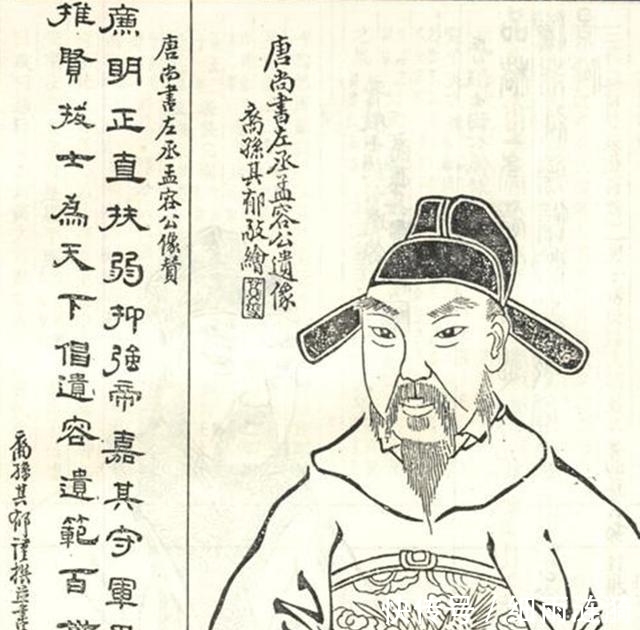 唐尚書左丞孟容公遺像
裔孫其郁敬繪
唐尚書左丞孟容公像贊
廉明正直扶弱抑強帝嘉其守軍
推賢拔士為天下倡遺容遺範百
裔孫其郁謹撰並書
快传号/泗雨